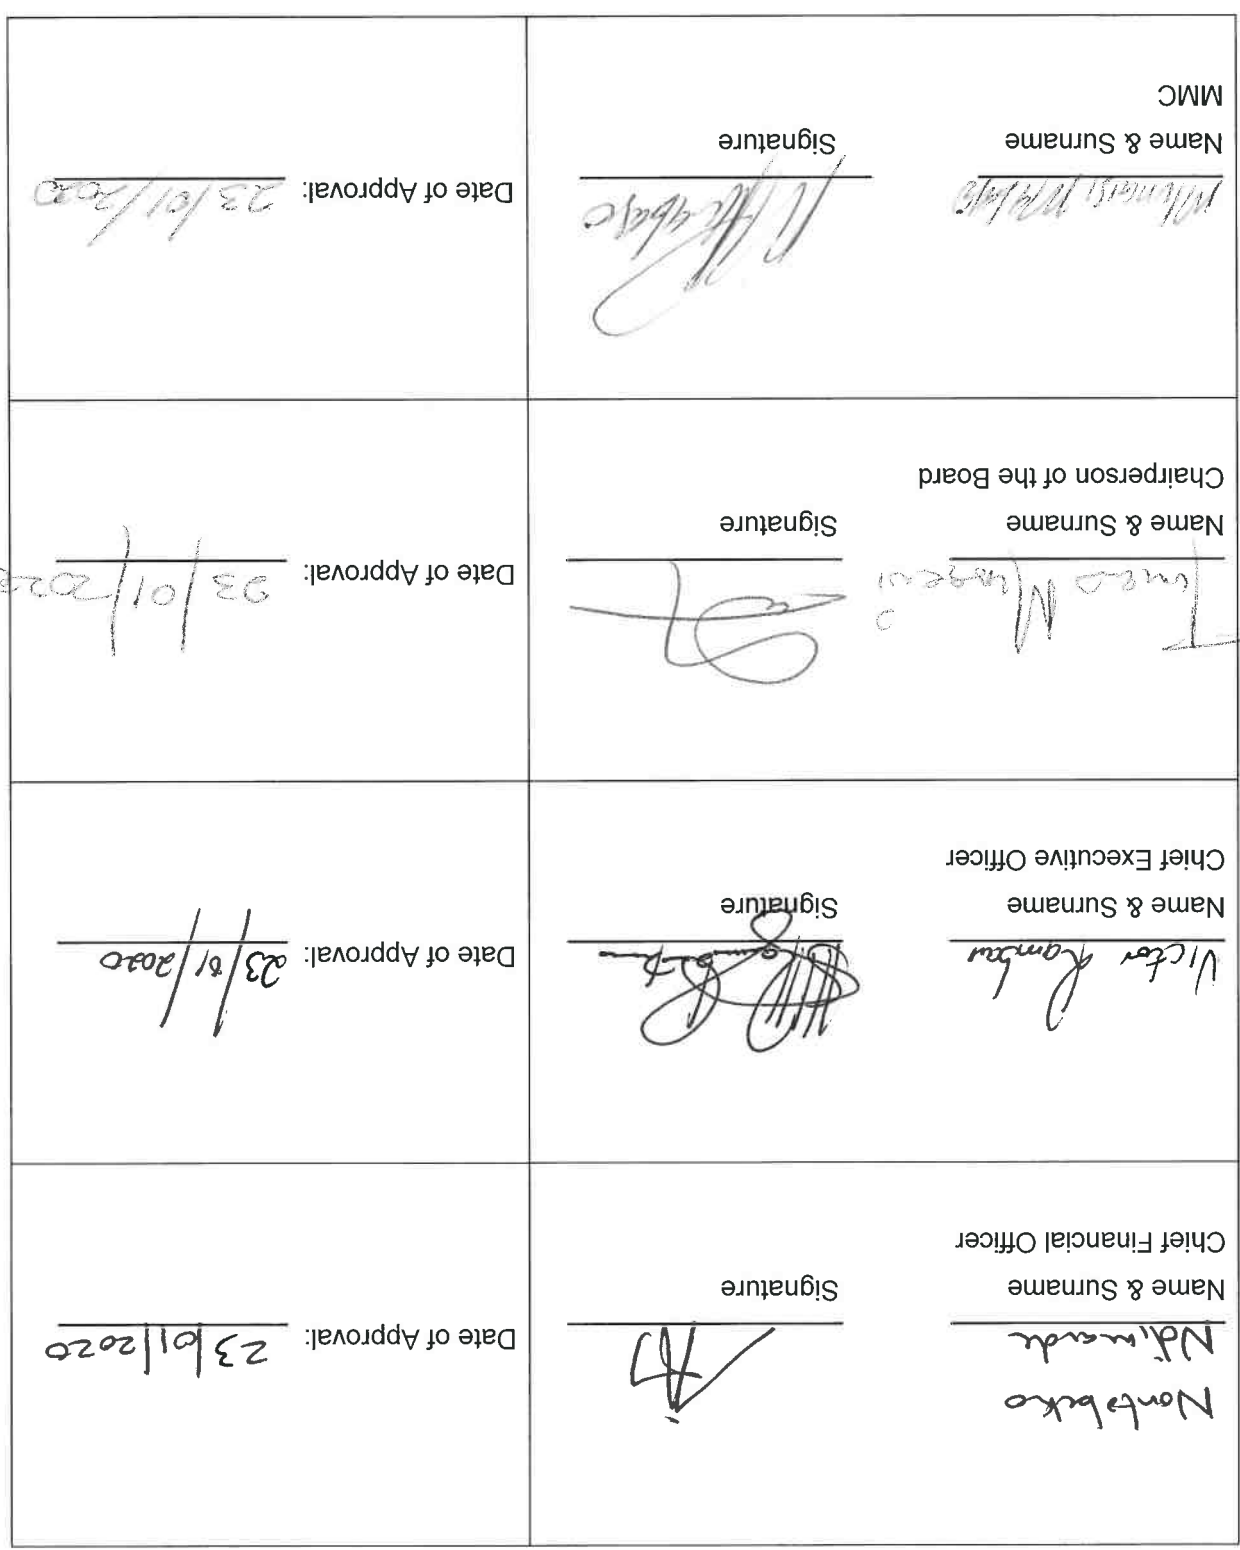 Nontobeko
Ndimande
Name & Surname
Chief Financial Officer
Signature
Date of Approval: 23/01/2020
Victor Rambau
Name & Surname
Chief Executive Officer
Signature
Date of Approval: 23/01/2020
Name & Surname
Chairperson of the Board
Signature
Date of Approval: 23/01/2020
Name & Surname
MMC
Signature
Date of Approval: 23/01/2020